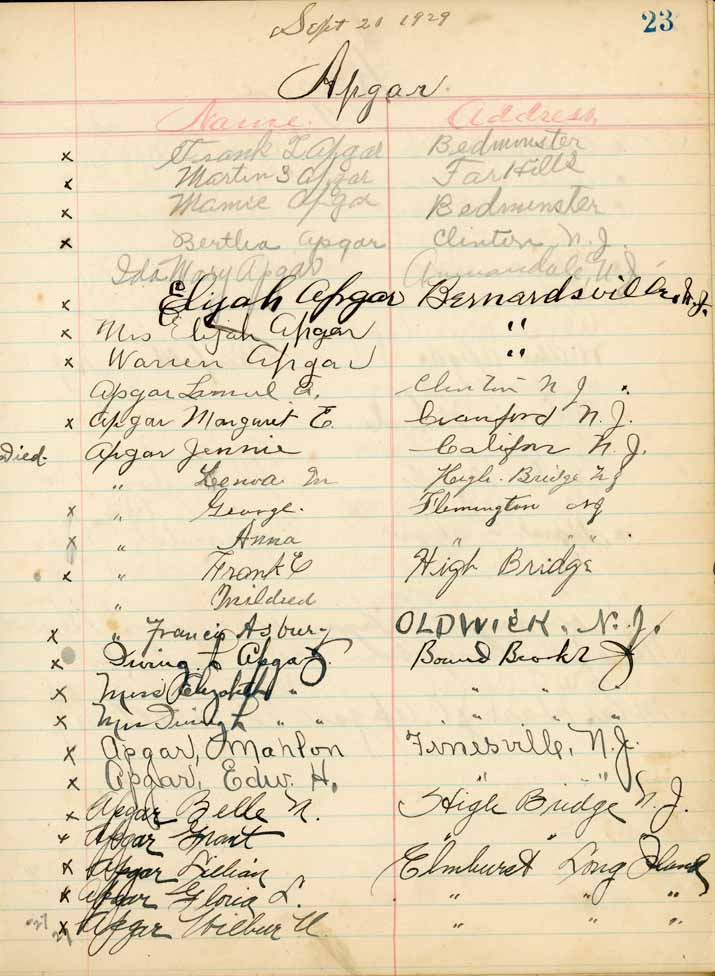 Sept 21 1929
23
Apgar
Name. Address.
x Frank L Apgar Bedminster
x Martin S Apgar Far Hills
x Mamie Apgar Bedminster
x Bertha Apgar Clinton N. J.
Ida Mary Apgar Annandale N.J.
x Elijah Apgar Bernardsville, N.J.
x Mrs Elijah Apgar "
x Warren Apgar "
Apgar Lamuel Clinton N J
x Apgar Margaret E. Cranford N. J.
Died. Apgar Jennie Califon N. J.
" Lenoa M High Bridge NJ
x " George. Flemington NJ
x " Anna " "
x " Frank C High Bridge
" Mildred
x " Francis Asbury OLDWICK, N. J.
x Apgar Bound Brook
x Miss Elizabeth " " " "
x Mrs " " " " "
x Apgar, Mahlon Finesville, N.J.
x Apgar, Edw. H. " "
x Apgar Belle N. High Bridge N. J.
x Apgar Grant " "
x Apgar Lillian Elmhurst Long Island
x Apgar Gloria L. " " "
x Apgar Wilbur U. " " "